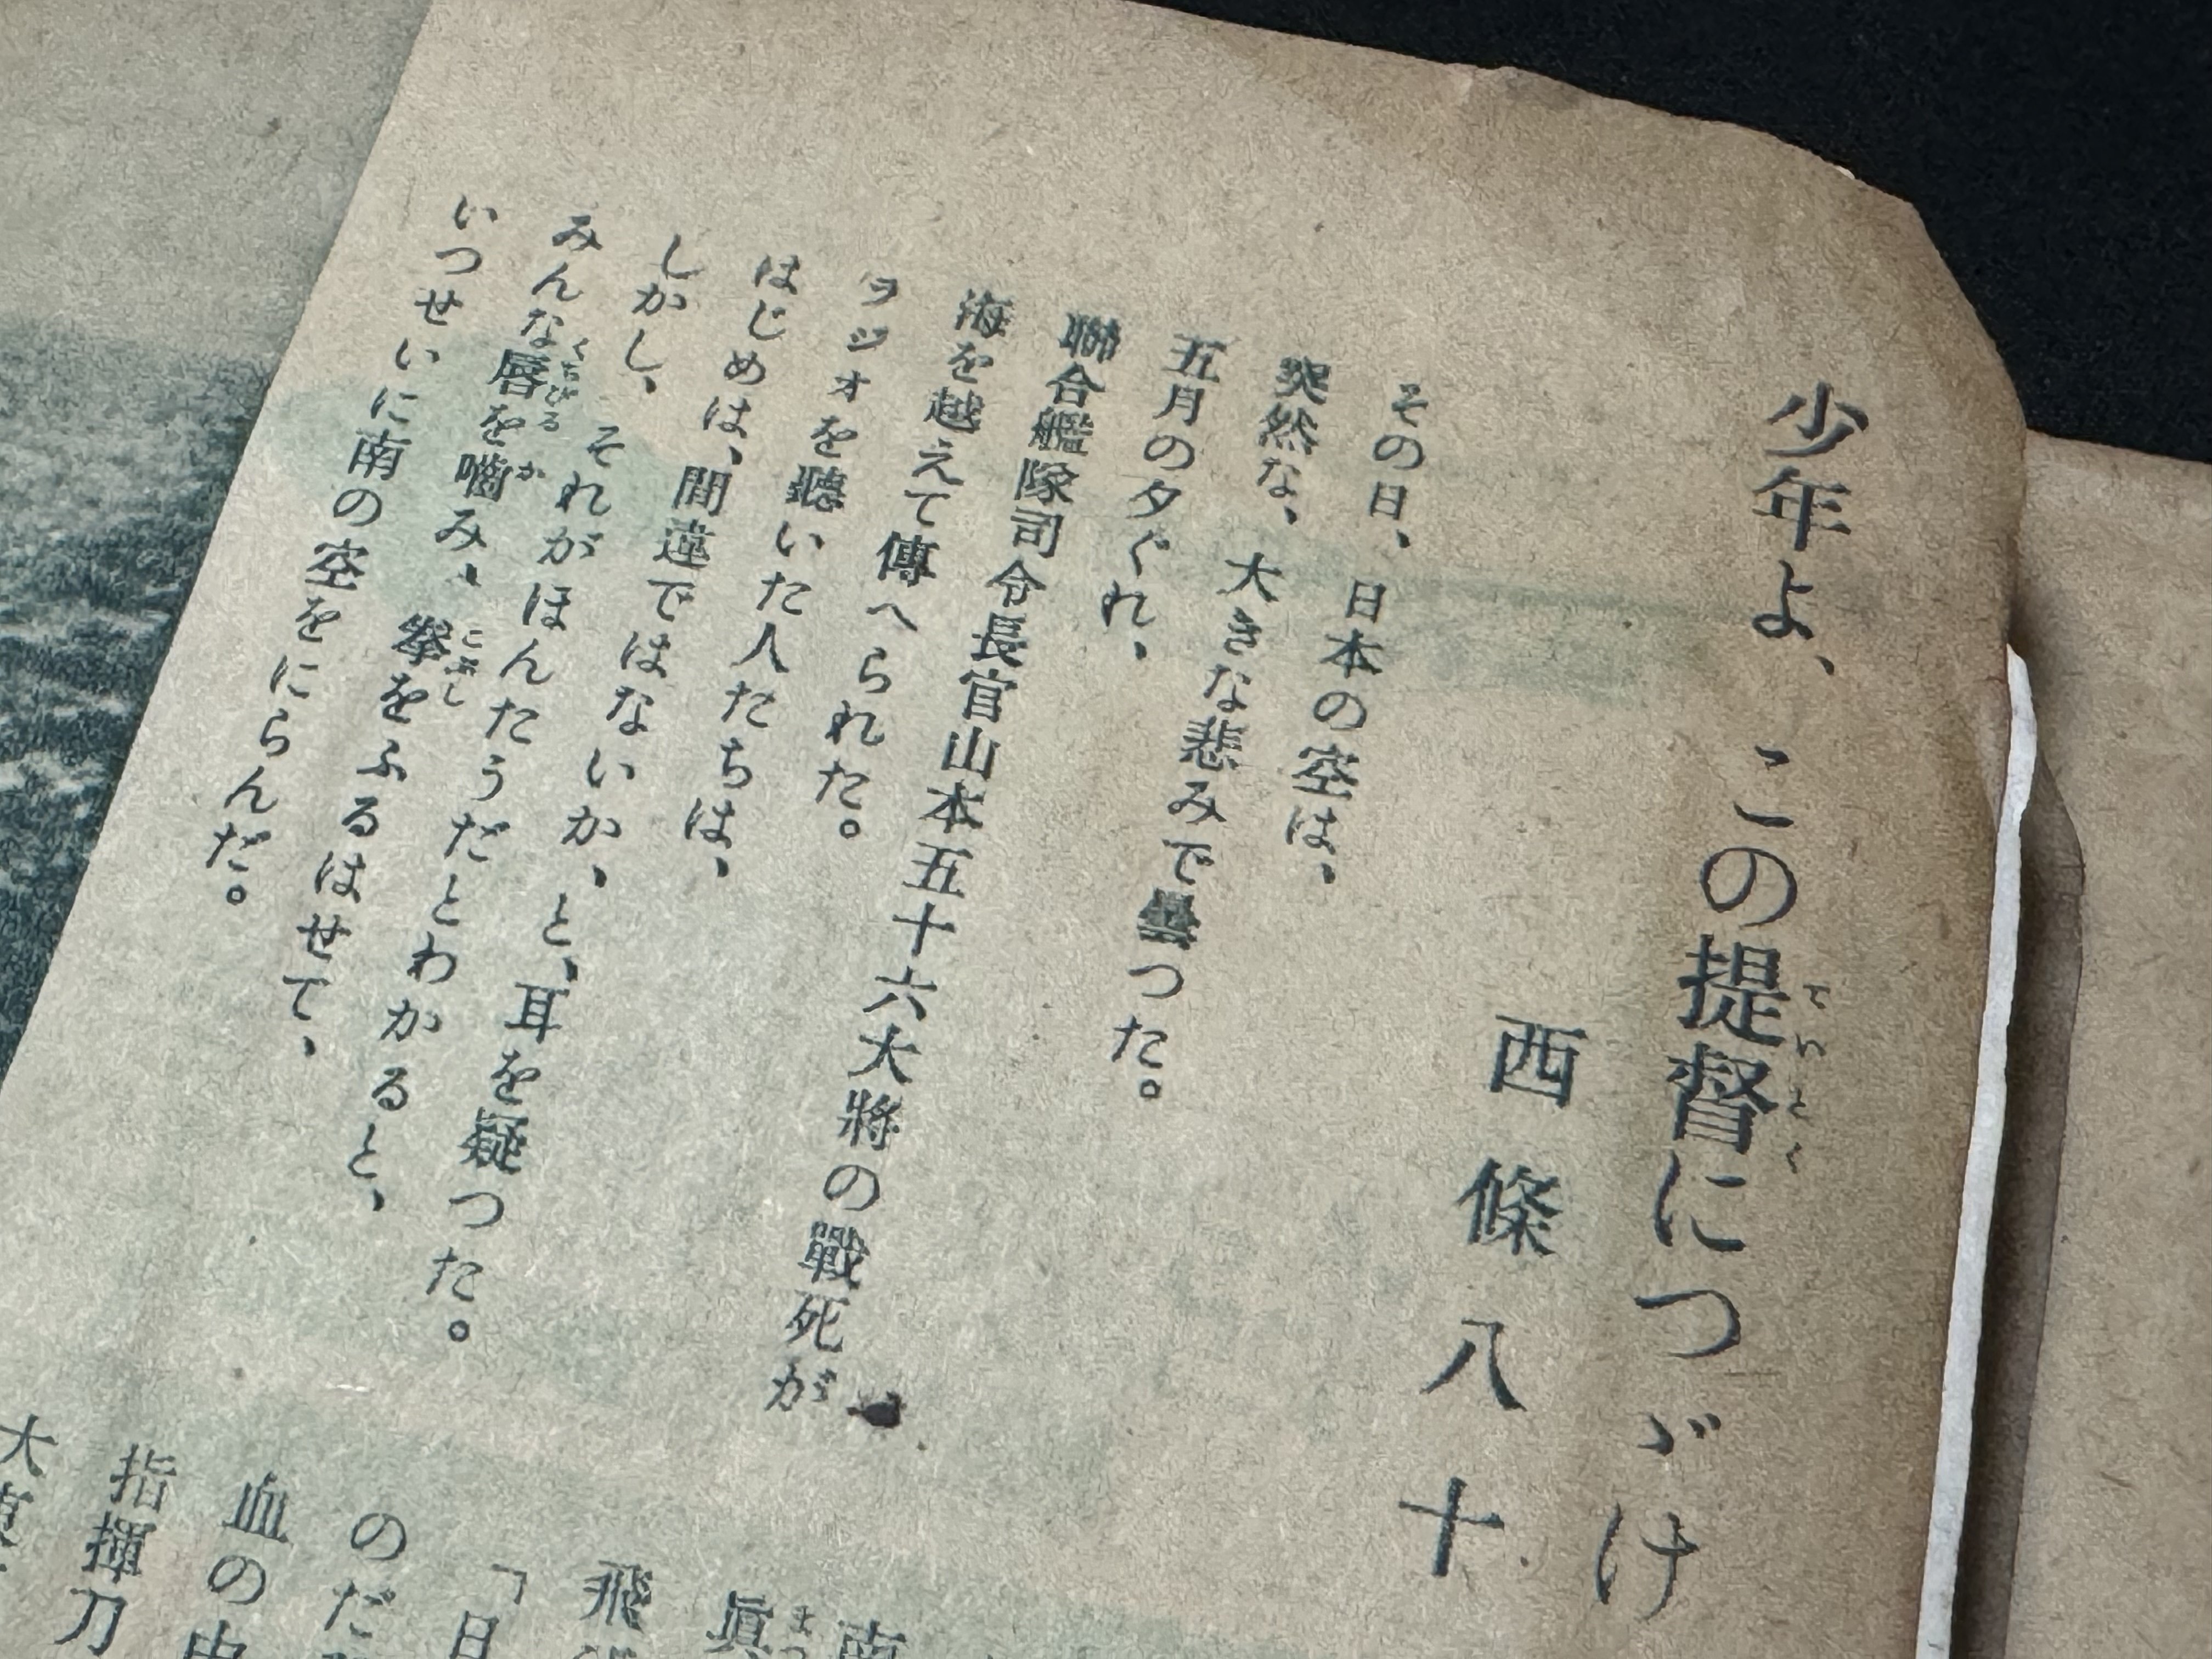 少年よ、この提督につゞけ
西條八十
その日、日本の空は、
突然な、大きな悲みで曇つた。
五月の夕ぐれ、
聯合艦隊司令長官山本五十六大將の戰死が
海を越えて傳へられた。
ラジオを聽いた人たちは、
はじめは、間違ではないか、と、耳を疑つた。
しかし、それがほんたうだとわかると、
みんな唇を嚙み、拳をふるはせて、
いつせいに南の空をにらんだ。
南
眞
飛
「日
のだ
血の中
指揮刀
大